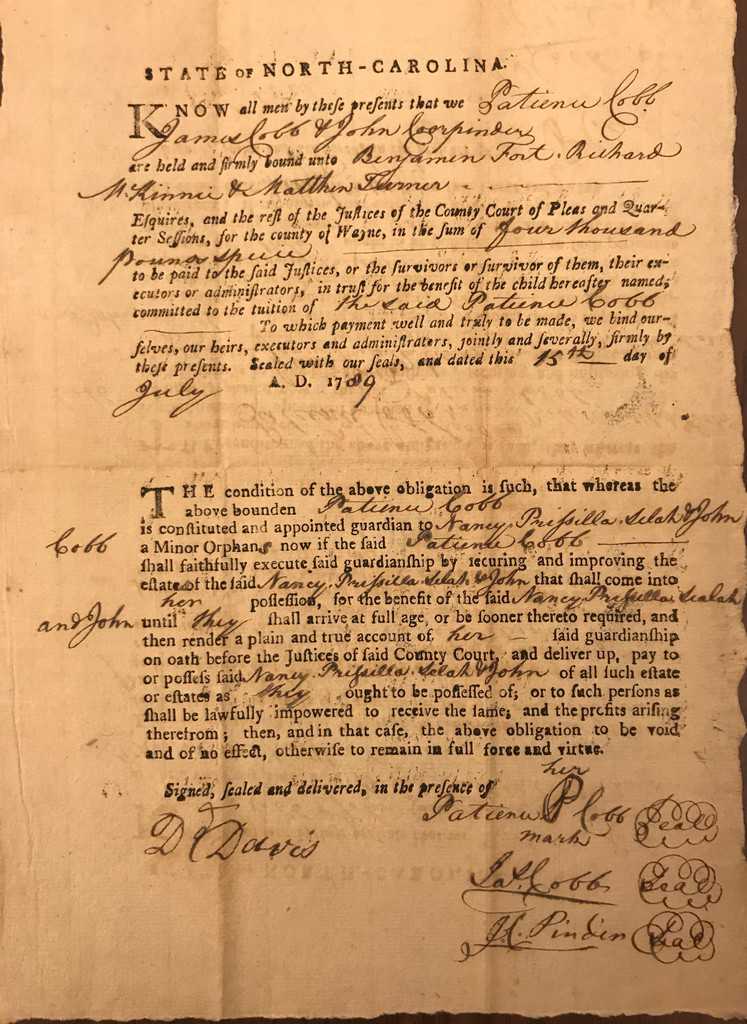 STATE OF NORTH-CAROLINA.
KNOW all men by theſe preſents that we Patience Cobb
James Cobb & John Carpinder
are held and firmly bound unto Benjamin Fort. Richard
McKinnie & Matthew Turner
Eſquires, and the reſt of the Juſtices of the County Court of Pleas and Quar-
ter Seſſions, for the county of Wayne, in the ſum of four thousand
Pounds Specie
to be paid to the ſaid Juſtices, or the ſurvivors or ſurvivor of them, their ex-
ecutors or adminiſtrators, in truſt for the benefit of the child hereafter named,
committed to the tuition of the said Patience Cobb
To which payment well and truly to be made, we bind our-
ſelves, our heirs, executors and adminiſtrators, jointly and ſeverally, firmly by
theſe preſents. Sealed with our ſeals, and dated this 15th day of
July A. D. 1789
THE condition of the above obligation is ſuch, that whereas the
above bounden Patience Cobb
is conſtituted and appointed guardian to Nancy Priſsilla. Selah & John
Cobb a Minor Orphans now if the ſaid Patience Cobb
ſhall faithfully execute ſaid guardianſhip by ſecuring and improving the
eſtate of the ſaid Nancy. Priſsilla. Selah & John that ſhall come into
her poſſeſſion, for the benefit of the ſaid Nancy Priſsilla Sealah
and John until they ſhall arrive at full age, or be ſooner thereto required, and
then render a plain and true account of her ſaid guardianſhip
on oath before the Juſtices of ſaid County Court, and deliver up, pay to
or poſſeſs ſaid Nancy. Priſsilla. Selah & John of all ſuch eſtate
or eſtates as they ought to be poſſeſſed of; or to ſuch perſons as
ſhall be lawfully impowered to receive the ſame; and the profits ariſing
therefrom; then, and in that caſe, the above obligation to be void
and of no effect, otherwiſe to remain in full force and virtue.
Signed, ſealed and delivered, in the preſence of
her
Patience P Cobb Seal
mark
D Davis
Jas. Cobb Seal
Pinden Seal